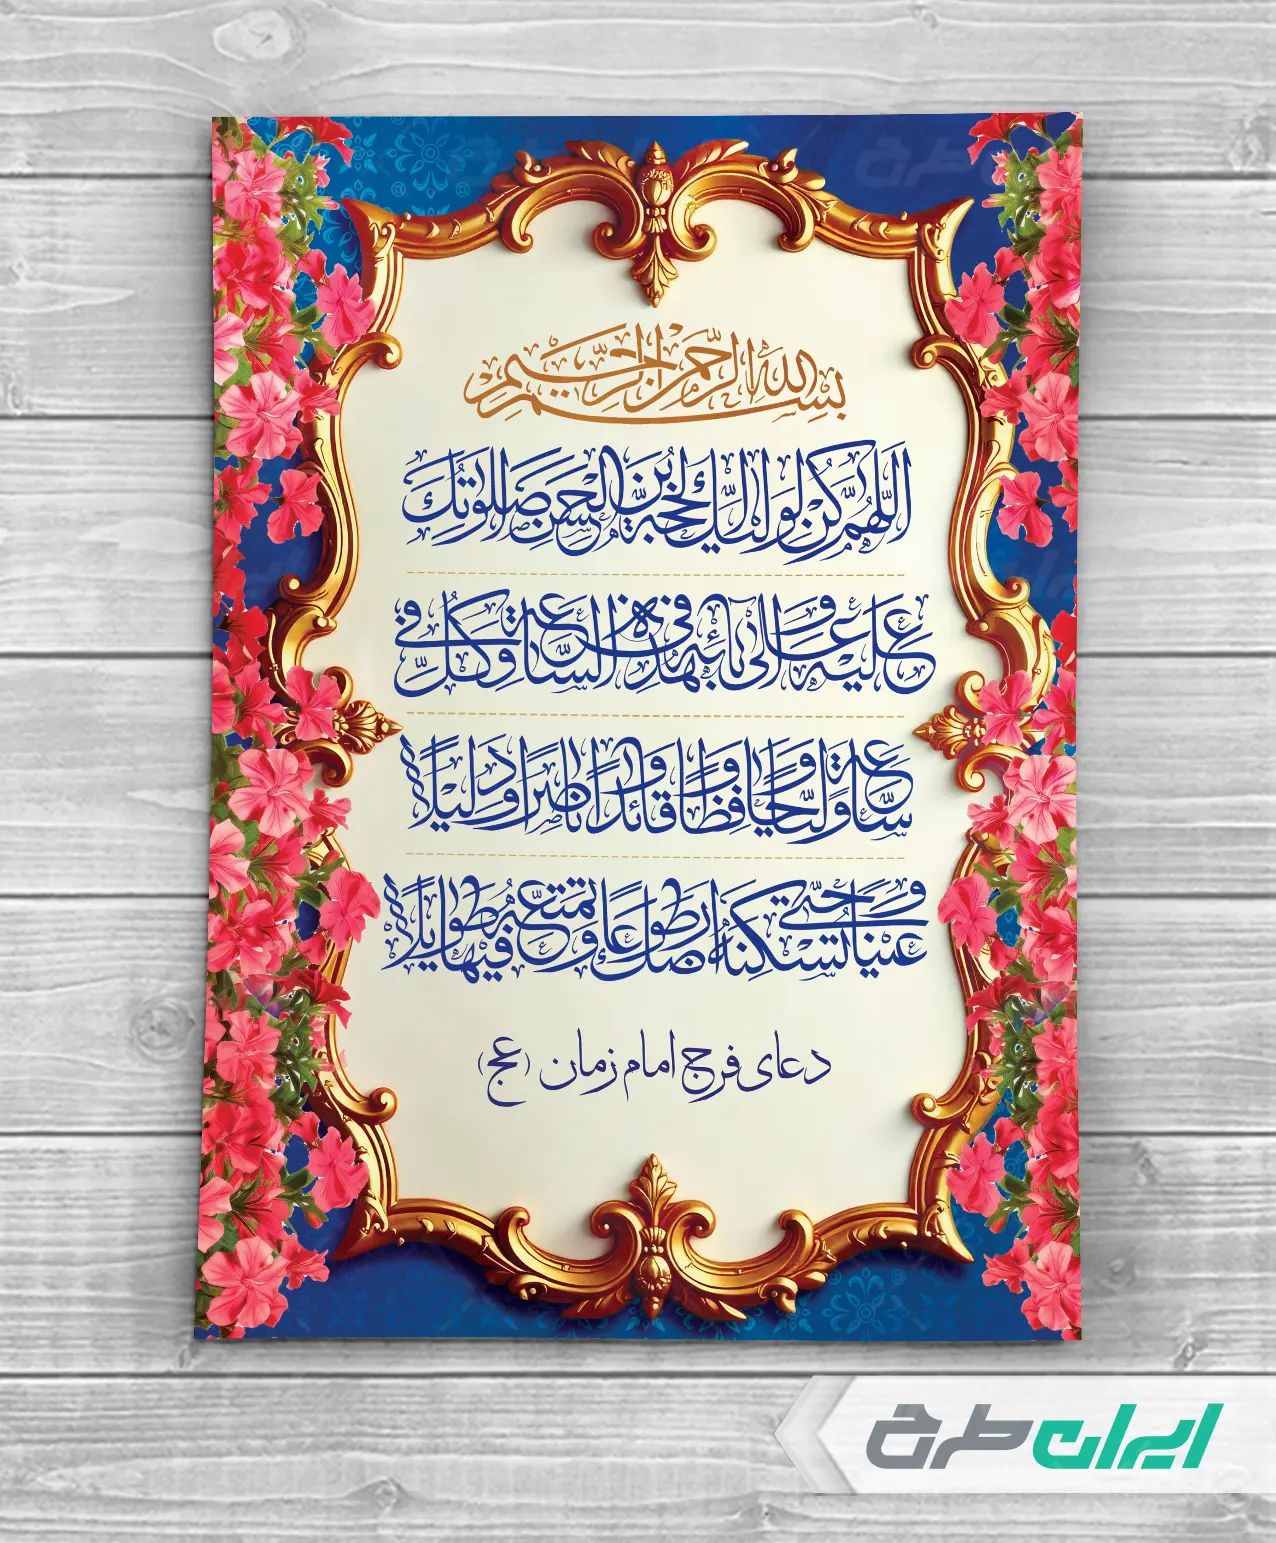 بِسْمِ اللهِ الرَّحْمنِ الرَّحِیمِ
اَللّهُمَّ كُنْ لِوَلِیِّكَ الْحُجَّةِ بْنِ الْحَسَنِ صَلَواتُكَ
عَلَیْهِ وَ عَلى آبائِهِ فِی هذِهِ السَّاعَةِ وَ فِی كُلِّ
سَاعَةٍ وَلِیّاً وَ حافِظاً وَ قائِداً وَ ناصِراً وَ دَلِیلاً
وَ عَیْناً حَتّى تُسْكِنَهُ اَرْضَكَ طَوْعاً وَ تُمَتِّعَهُ فِیها طَوِیلاً
دعای فرج امام زمان (عج)
ایران طرح